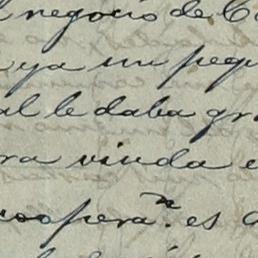 negocio de C
ya un pequ
al le daba gr
ra viuda e
coopera.n es a